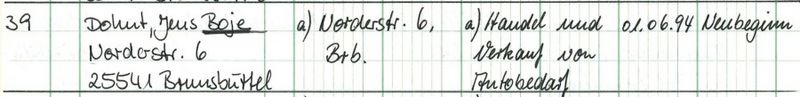 39 Dohrt, Jens Boje a) Norderstr. 6, a) Handel und 01.06.94 Neubeginn
Norderstr. 6 Brb. Verkauf von
25541 Brunsbüttel Autobedarf